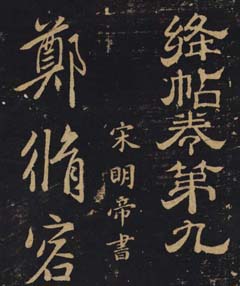 絳帖卷第九
宋明帝書
鄭脩容